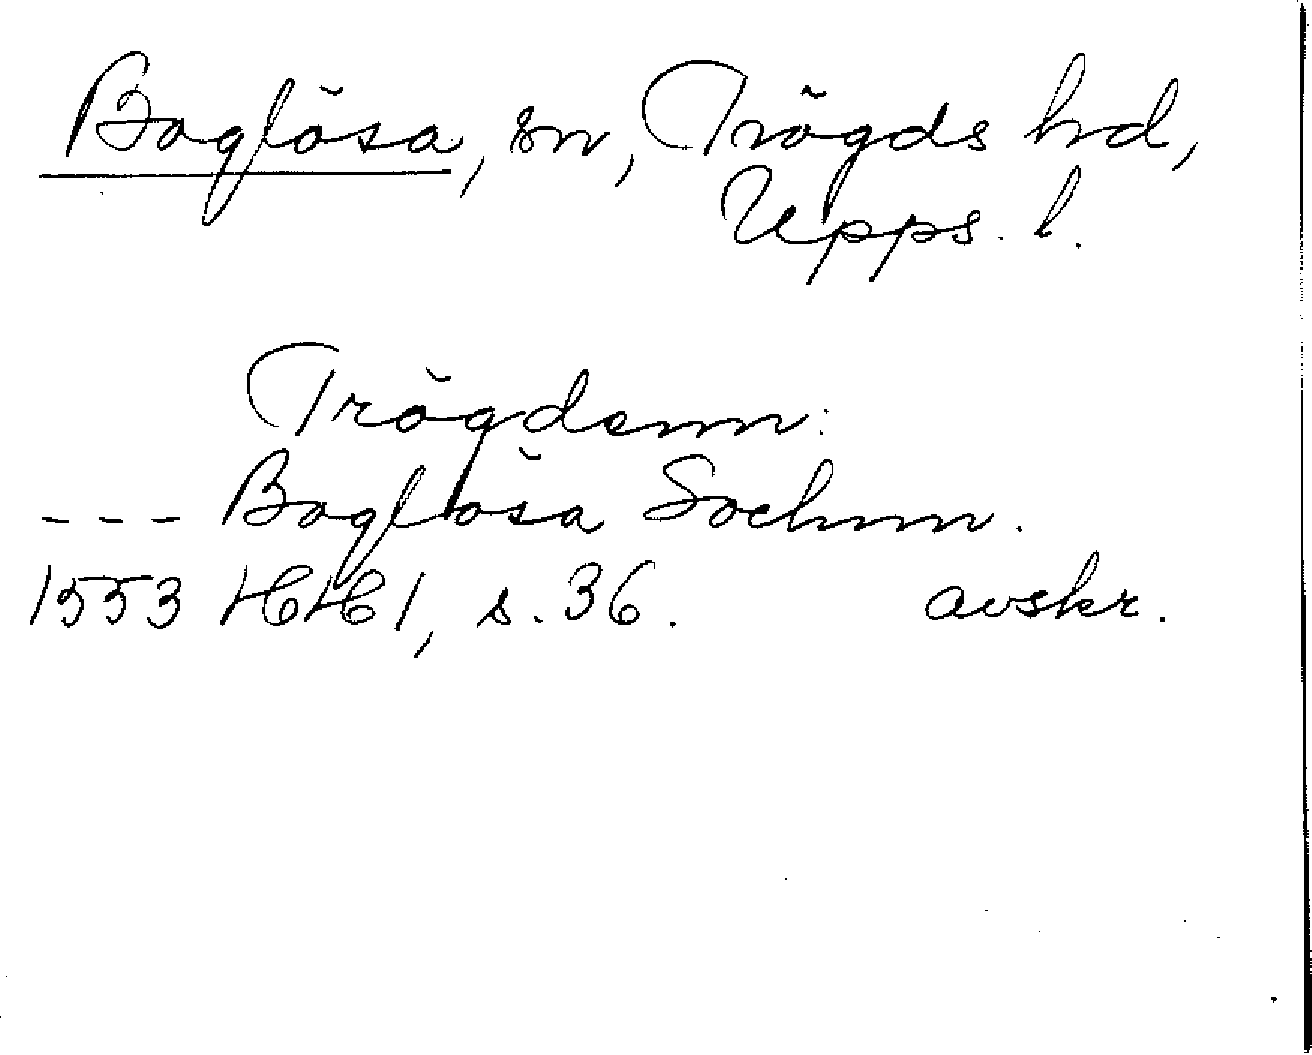 Boglösa, sn, Trögds hd,
Upps. l.
Trögdenn:
--- Boglösa Sochnn.
1553 HH 1, s. 36. avskr.